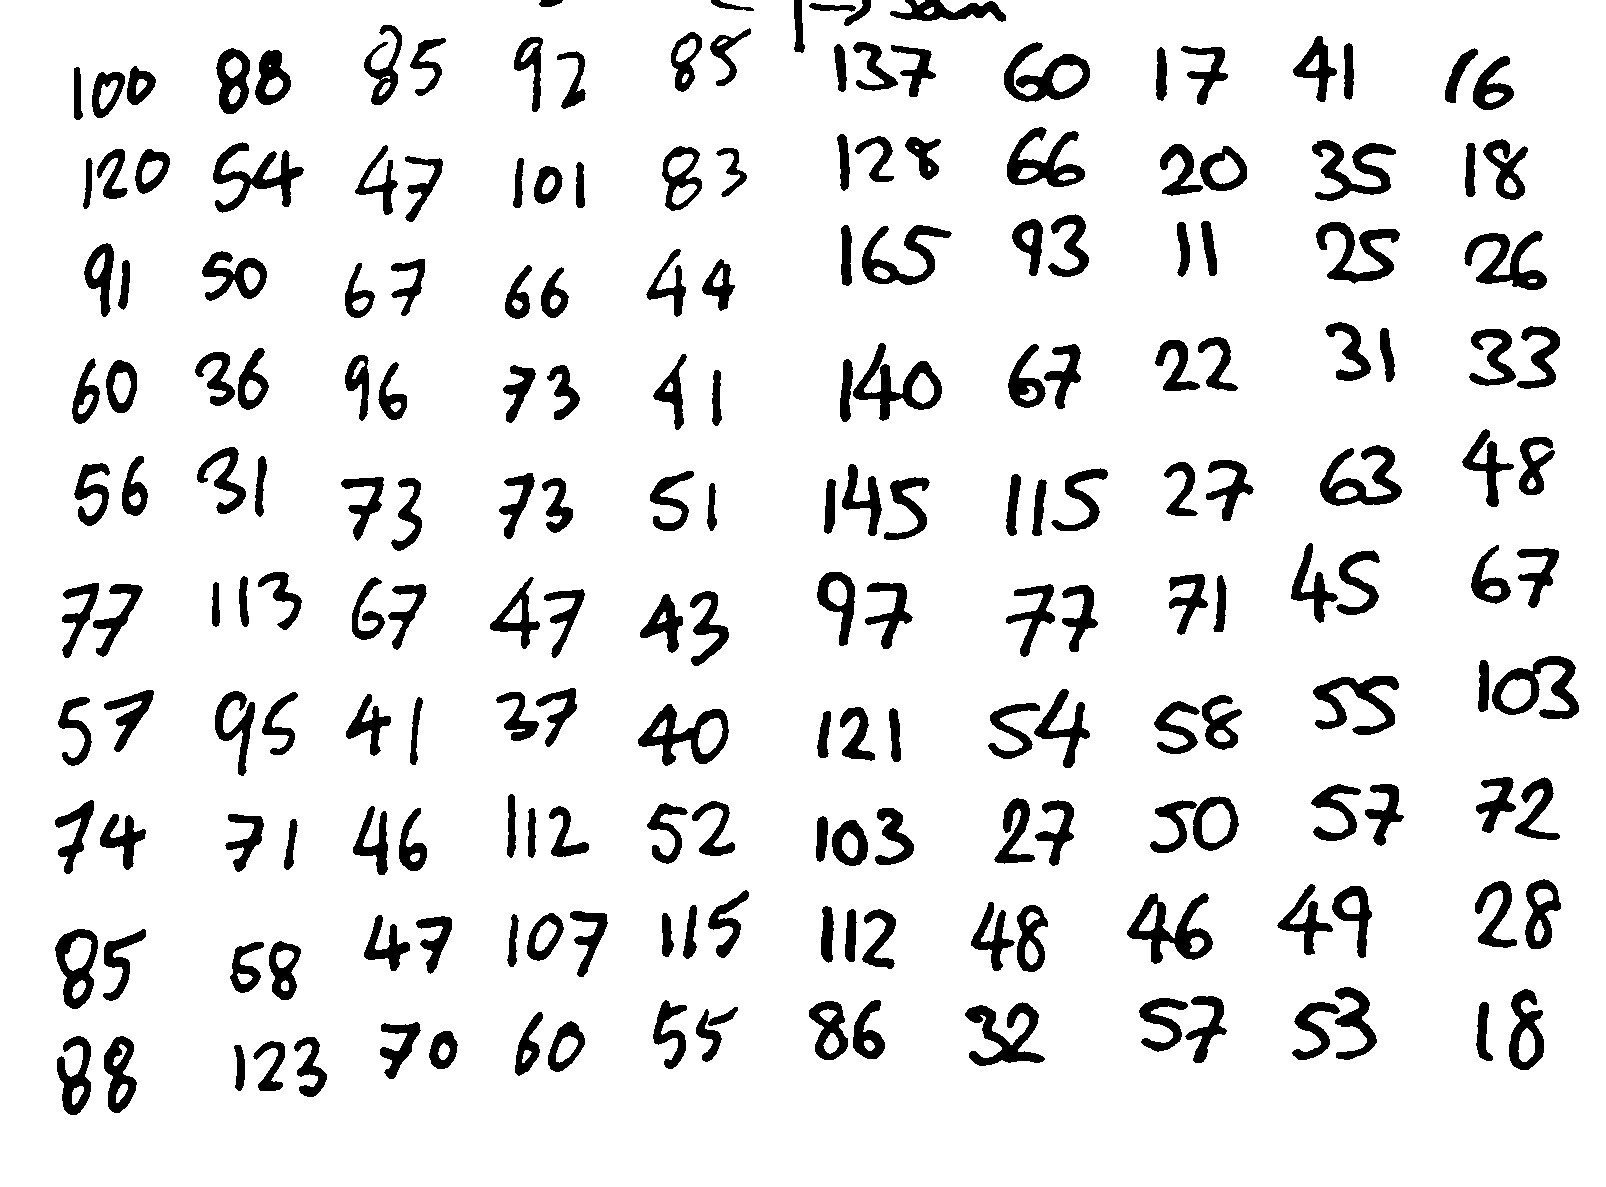 → sam
100 88 85 92 85 137 60 17 41 16
120 54 47 101 83 128 66 20 35 18
91 50 67 66 44 165 93 11 25 26
60 36 96 73 41 140 67 22 31 33
56 31 73 73 51 145 115 27 63 48
77 113 67 47 43 97 77 71 45 67
57 95 41 37 40 121 54 58 55 103
74 71 46 112 52 103 27 50 57 72
85 68 47 107 115 112 48 46 49 28
88 123 70 60 55 86 32 57 53 18